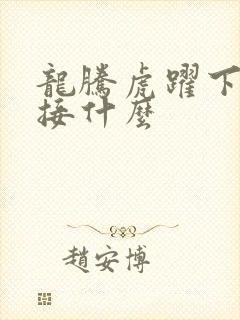 龍騰虎躍下
接什麼
趙安博